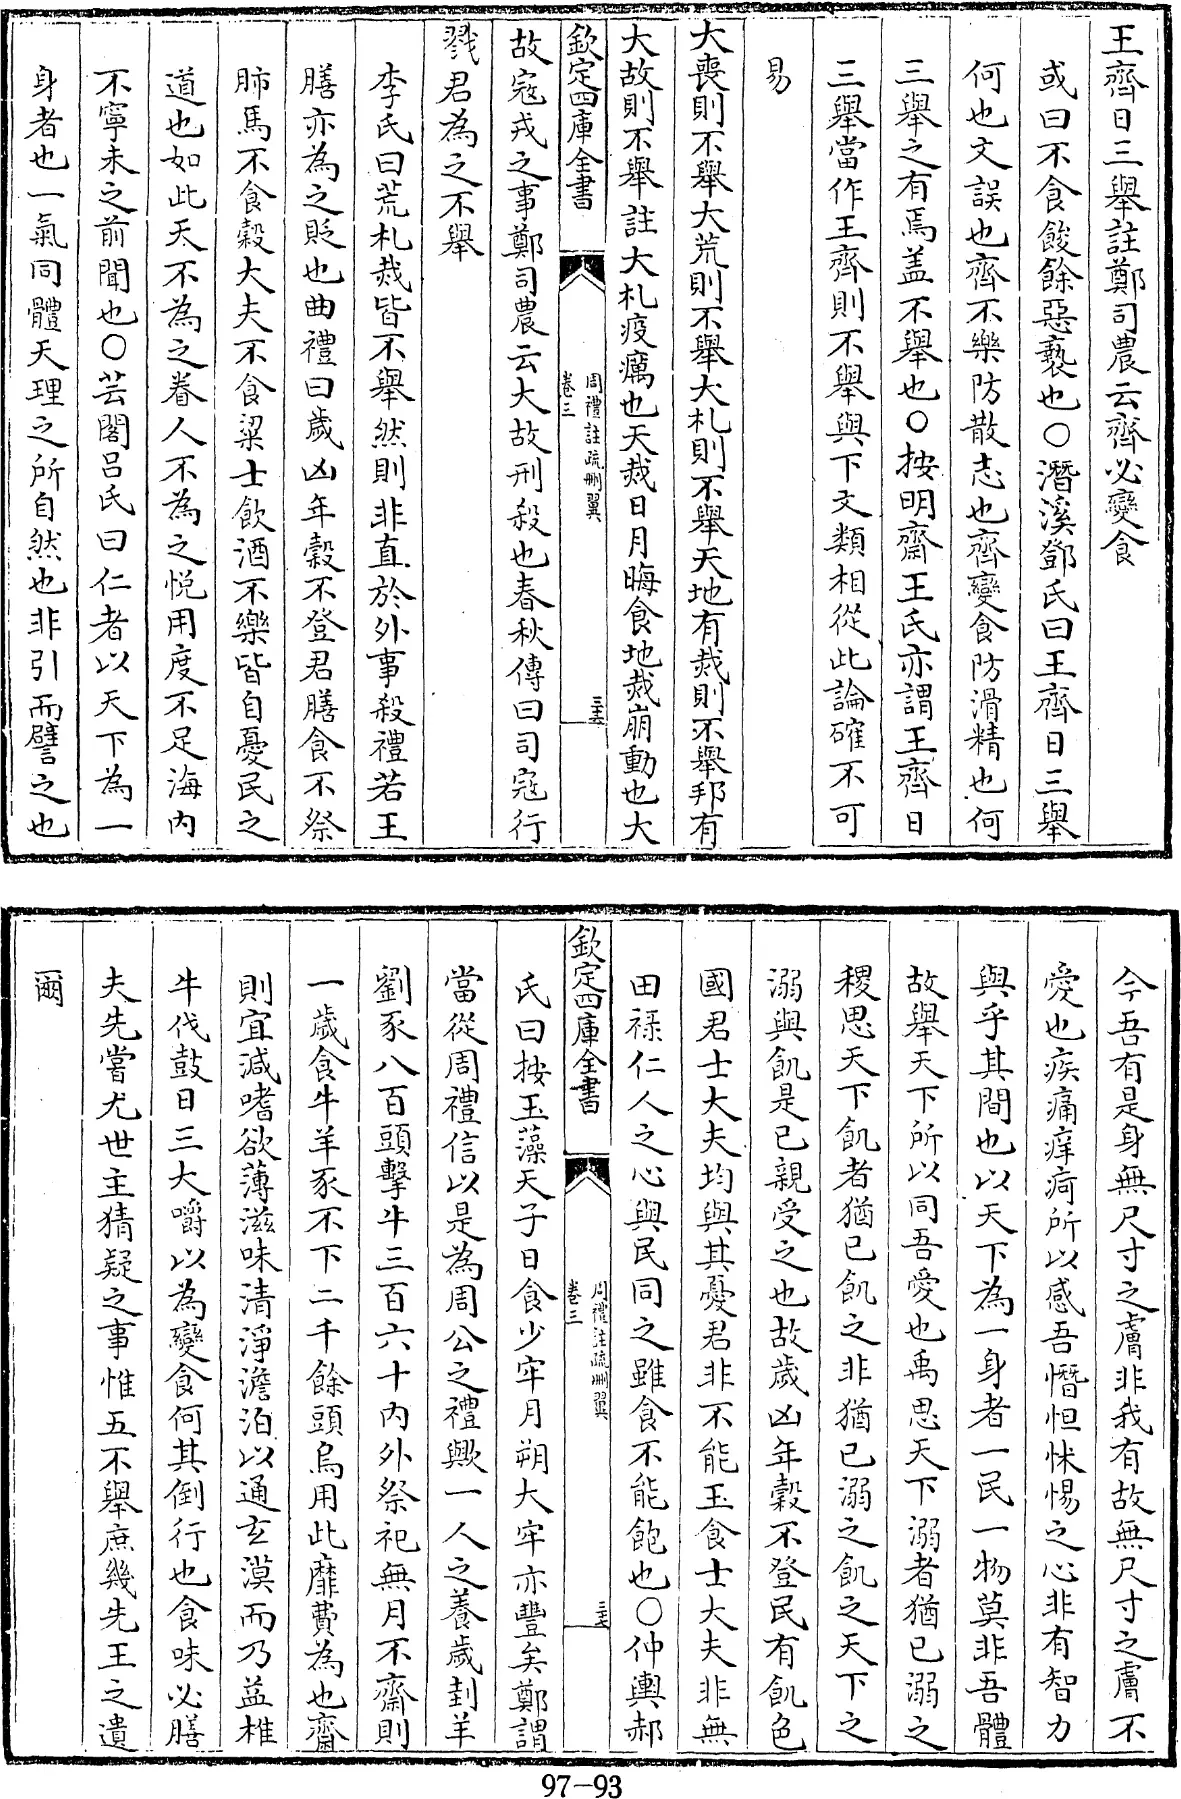 王齊日三舉註鄭司農云齊必變食
或曰不食餕餘惡褻也○潛溪鄧氏曰王齊日三舉
何也文誤也齊不樂防散志也齊變食防滑精也何
三舉之有焉盖不舉也○按明齋王氏亦謂王齊日
三舉當作王齊則不舉與下文類相從此論確不可
易
大喪則不舉大荒則不舉大札則不舉天地有烖則不舉邦有
大故則不舉註大札疫癘也天烖日月晦食地烖崩動也大
欽定四庫全書
周禮註疏刪翼
卷三
三十六
故寇戎之事鄭司農云大故刑殺也春秋傳曰司寇行
戮君為之不舉
李氏曰荒札烖皆不舉然則非直於外事殺禮若王
膳亦為之貶也曲禮曰歲凶年穀不登君膳食不祭
肺馬不食穀大夫不食粱士飲酒不樂皆自憂民之
道也如此天不為之眷人不為之悅用度不足海內
不寧未之前聞也○芸閣呂氏曰仁者以天下為一
身者也一氣同體天理之所自然也非引而譬之也
今吾有是身無尺寸之膚非我有故無尺寸之膚不
愛也疾痛痒疴所以感吾憯怛怵惕之心非有智力
與乎其間也以天下為一身者一民一物莫非吾體
故舉天下所以同吾愛也禹思天下溺者猶已溺之
稷思天下飢者猶已飢之非猶已溺之飢之天下之
溺與飢是已親受之也故歲凶年穀不登民有飢色
國君士大夫均與其憂君非不能玉食士大夫非無
田祿仁人之心與民同之雖食不能飽也○仲輿郝
欽定四庫全書
周禮註疏刪翼
卷三
三十七
氏曰按玉藻天子日食少牢月朔大牢亦豐矣鄭謂
當從周禮信以是為周公之禮歟一人之養歲刲羊
劉豕八百頭擊牛三百六十內外祭祀無月不齋則
一歲食牛羊豕不下二千餘頭烏用此靡費為也齋
則宜減嗜欲薄滋味清淨澹泊以通玄漠而乃益椎
牛伐鼓日三大嚼以為變食何其倒行也食味必膳
夫先嘗尤世主猜疑之事惟五不舉庶幾先王之遺
爾
97-93